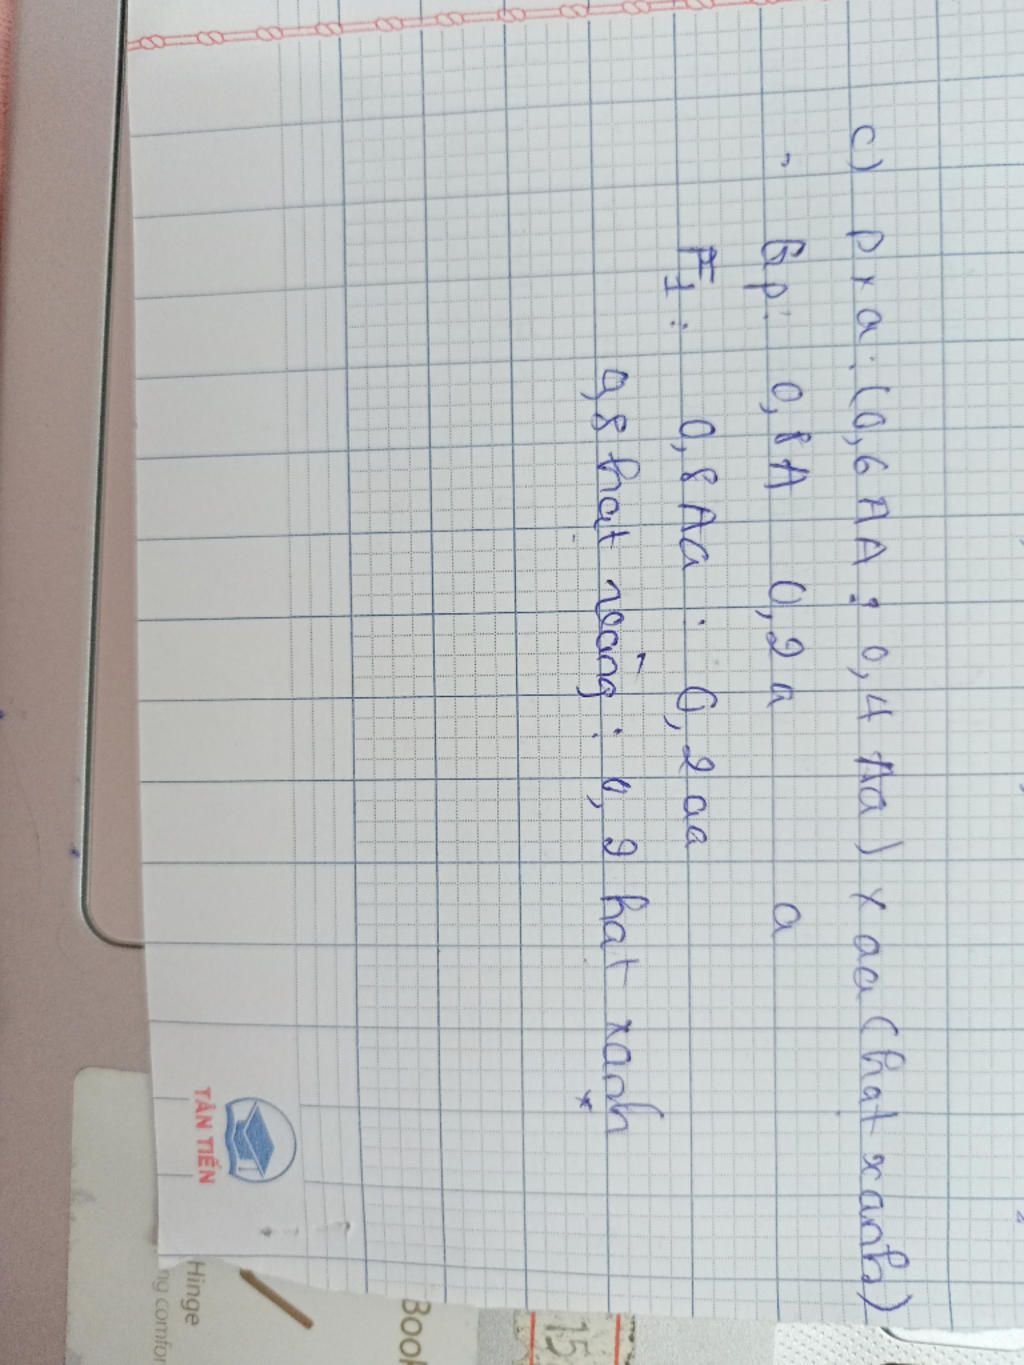 c) P x a : (0,6 AA : 0,4 Aa) x aa (hạt xanh)
Gp: 0,8A 0,2a a
F1 : 0,8Aa : 0,2aa
0,8 hat vàng : 0,2 hat xanh
TÂN TIẾN
Hinge
Book
15